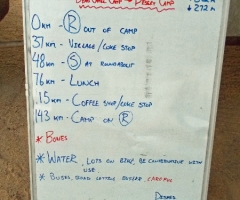 → Desert Camp
↓ 272 m
0km - R out of camp
37km - Village/Coke stop
48km - S at roundabout
76km - Lunch
115km - Coffee stop/Coke stop
143km - Camp on R
* Bones
* Water, lots on
be conservative with
use
* Buses, road careful
Desert